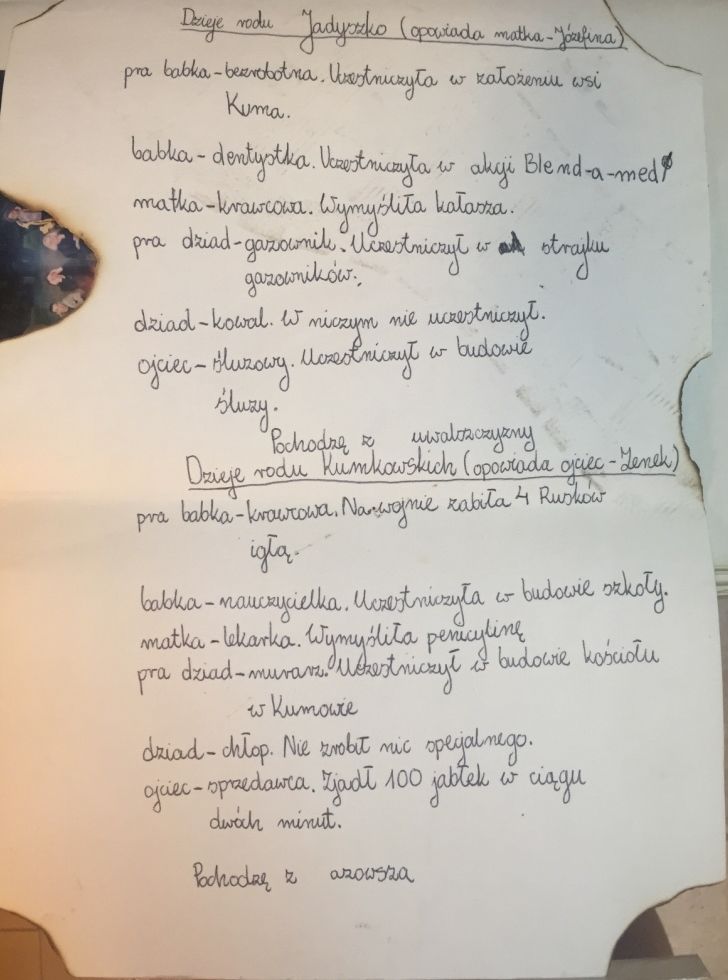 Dzieje rodu Jadyszko (opowiada matka-Józefina)
pra babka-bezrobotna. Uczestniczyła w założeniu wsi
Kuma.
babka-dentystka. Uczestniczyła w akcji Blend-a-med
matka-krawcowa. Wymyśliła kałasza.
pra dziad-gazownik. Uczestniczył w strajku
gazowników.
dziad-kowal. W niczym nie uczestniczył.
ojciec-śluzowy. Uczestniczył w budowie
śluzy.
Pochodzę z uwalszczyzny
Dzieje rodu Kumkowskich (opowiada ojciec-Zenek)
pra babka-krawcowa. Na wojnie zabiła 4 Rusków
igłą.
babka-nauczycielka. Uczestniczyła w budowie szkoły.
matka-lekarka. Wymyśliła penicylinę
pra dziad-murarz. Uczestniczył w budowie kościołu
w Kumowie
dziad-chłop. Nie zrobił nic specjalnego.
ojciec-sprzedawca. Zjadł 100 jabłek w ciągu
dwóch minut.
Pochodzę z azowsza